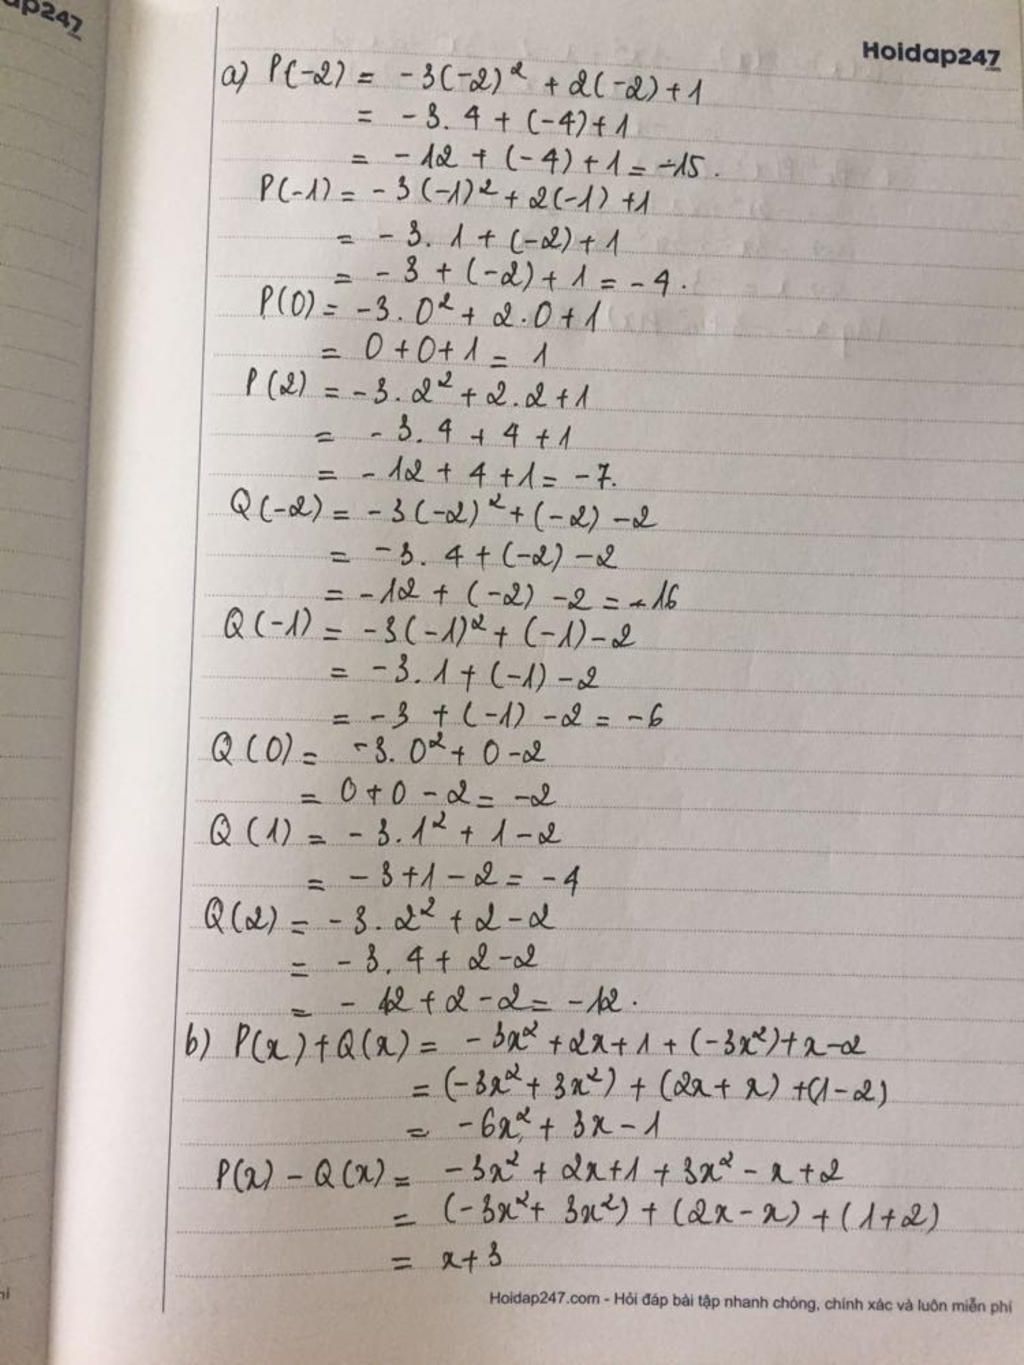 ap247
Hoidap247
a) P(-2) = -3(-2)² + 2(-2)+1
= -3.4 + (-4)+1
= -12 + (-4)+1 = -15.
P(-1) = -3(-1)² + 2(-1)+1
= -3.1 + (-2)+1
= -3 + (-2)+1 = -4.
P(0) = -3.0² + 2.0+1
= 0+0+1 = 1
P(2) = -3.2² + 2.2+1
= -3.4 + 4 +1
= -12 + 4 +1 = -7.
Q(-2) = -3(-2)² + (-2) -2
= -3.4 + (-2) -2
= -12 + (-2) -2 = -16
Q(-1) = -3(-1)² + (-1) -2
= -3.1 + (-1) -2
= -3 + (-1) -2 = -6
Q(0) = -3.0² + 0-2
= 0+0-2 = -2
Q(1) = -3.1² + 1-2
= -3+1-2 = -4
Q(2) = -3.2² + 2-2
= -3.4 + 2-2
= -12+2-2 = -12.
b) P(x)+Q(x) = -3x² +2x+1 + (-3x²)+x-2
= (-3x² + 3x²) + (2x+x) + (1-2)
= -6x² + 3x - 1
P(x) - Q(x) = -3x² + 2x+1 + 3x² - x+2
= (-3x² + 3x²) + (2x-x) + (1+2)
= x+3
Hoidap247.com - Hỏi đáp bài tập nhanh chóng, chính xác và luôn miễn phí